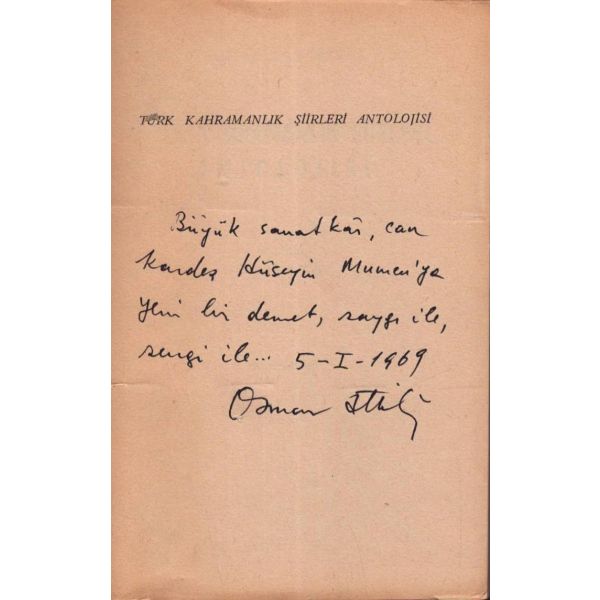 TÜRK KAHRAMANLIK ŞİİRLERİ ANTOLOJİSİ
Büyük sanatkâr, can
kardeş Hüseyin Mumcu'ya
Yeni bir demet, saygı ile,
sevgi ile... 5-I-1969
Osman Attilâ